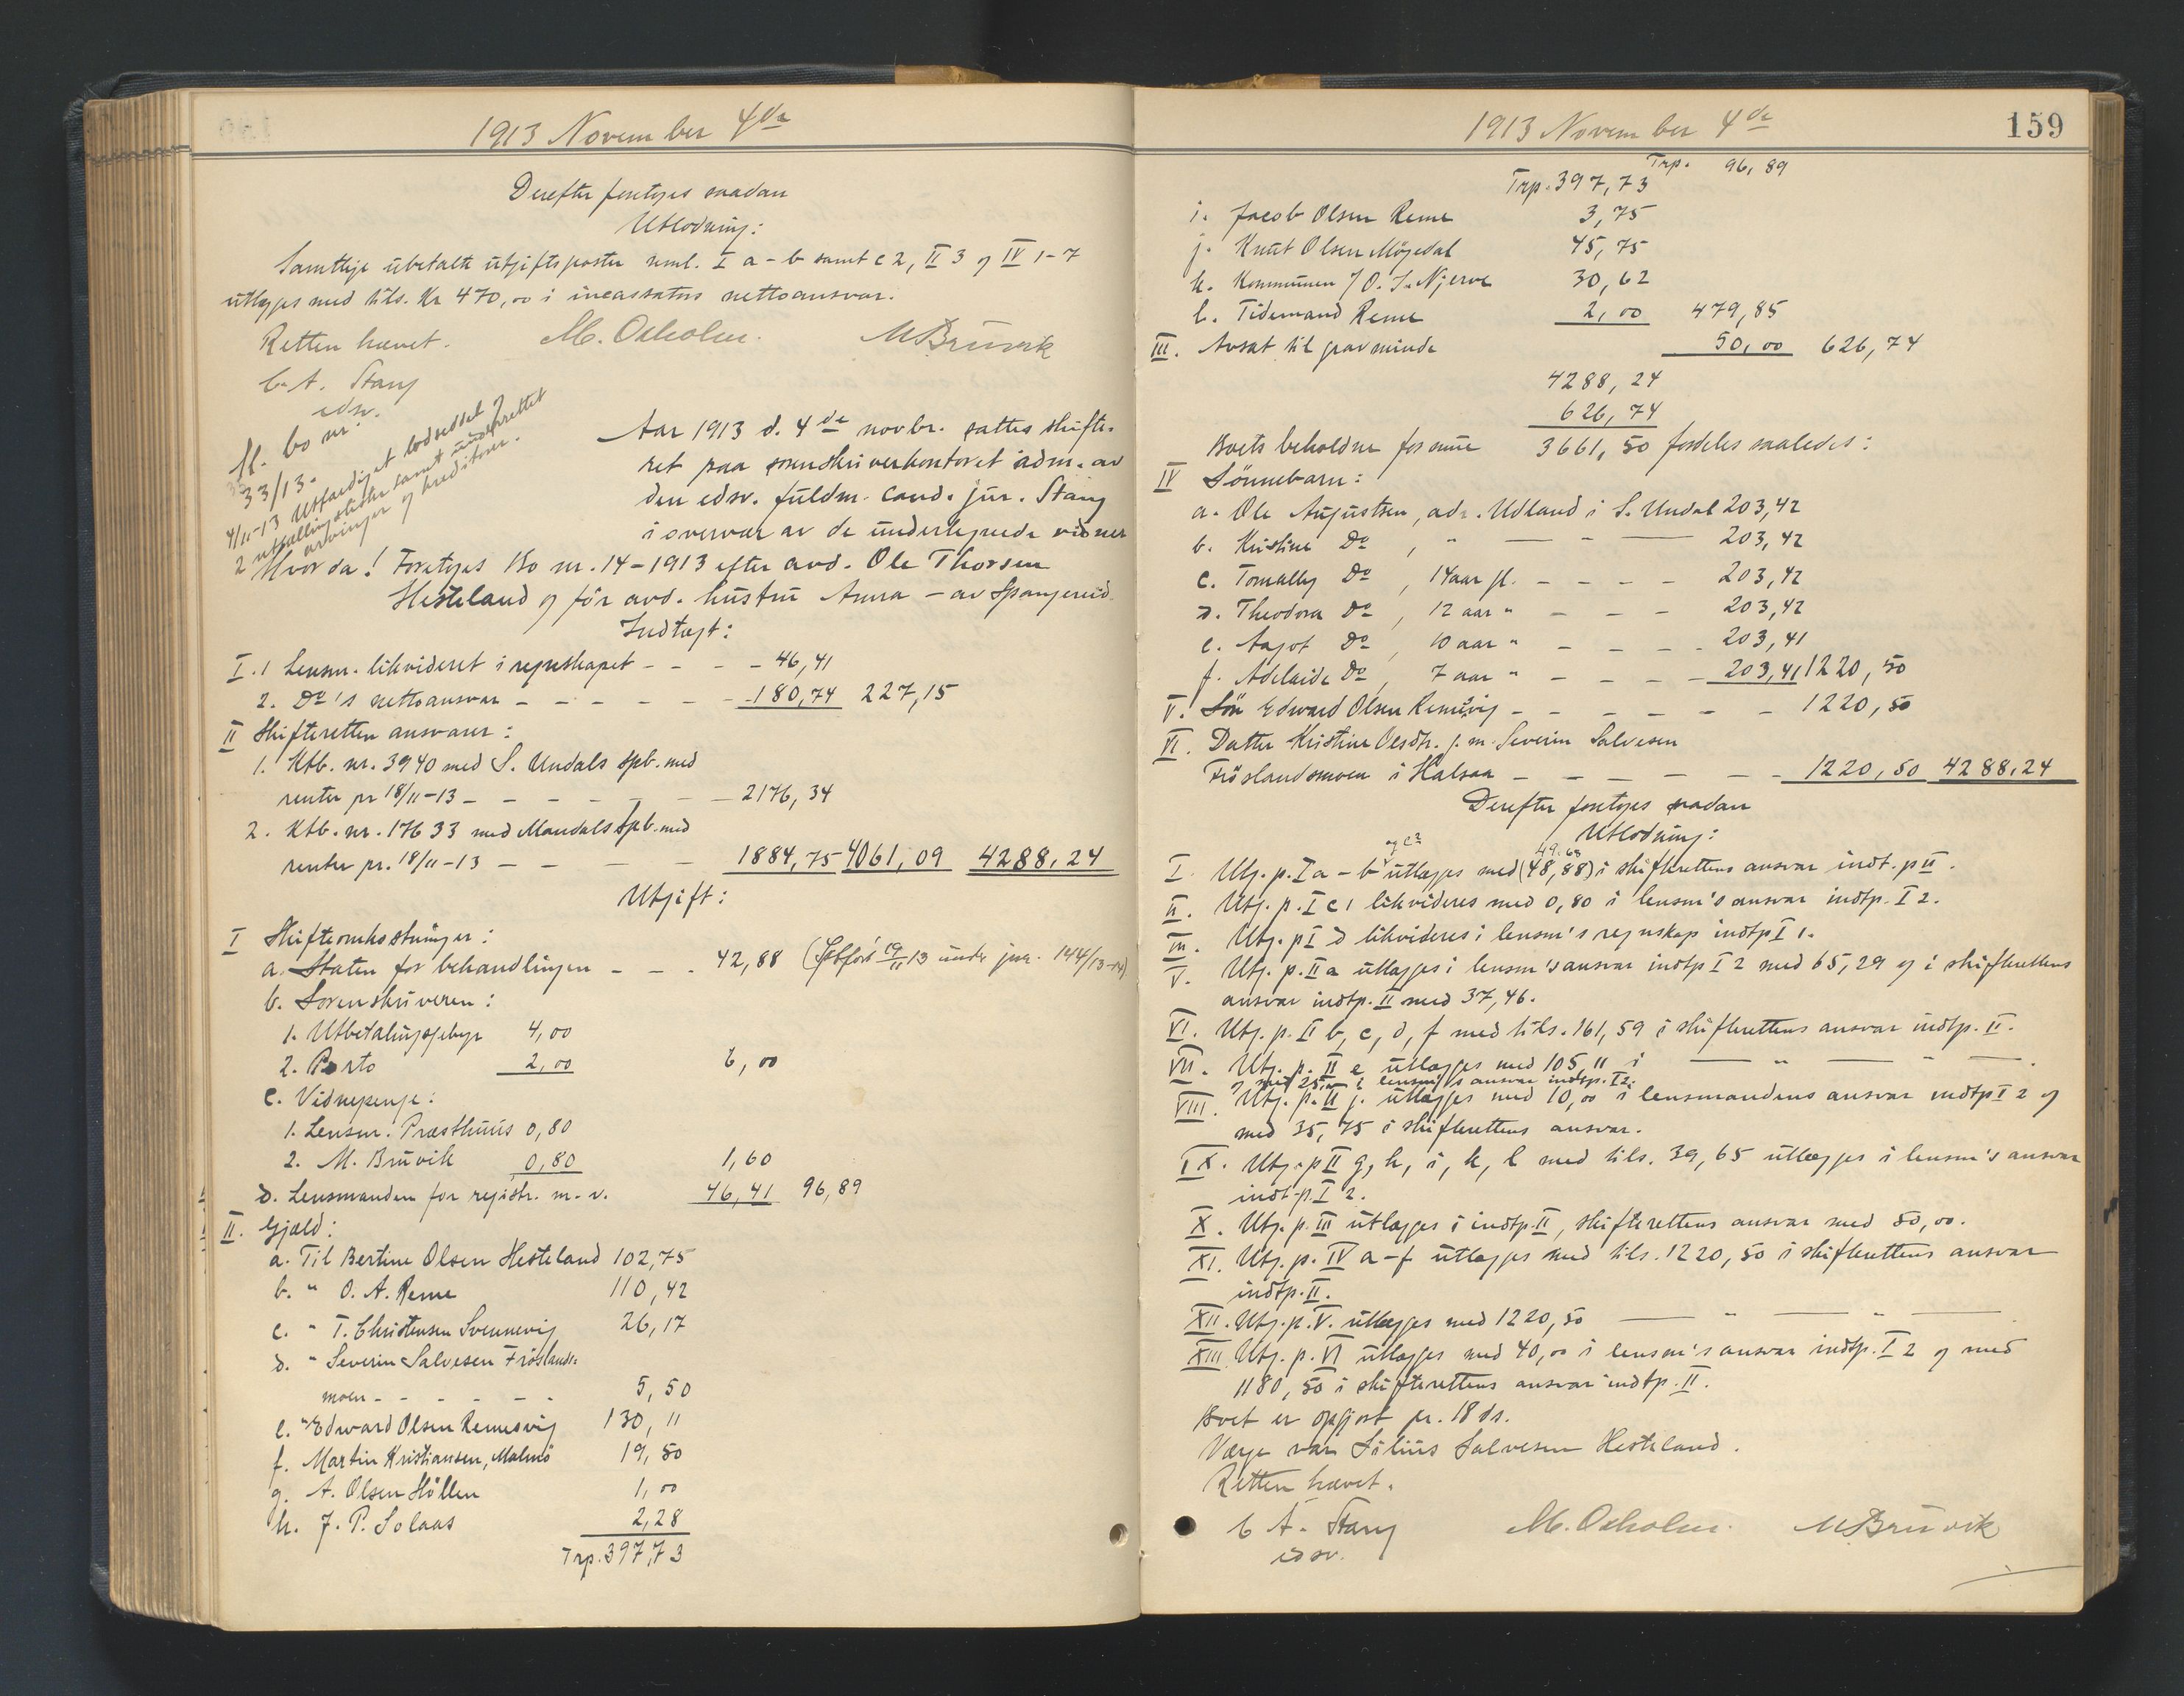 1913 November 4de
Derefter foretoges saadan
Utlodning:
Samtlige ubetalte utgiftsposter neml. I a-b samt c 2, II 3 og IV 1-7
utlægges med tils. Kr 470,00 i incassators nettoansvar.
Retten hævet. M. Oxholm. M Bruvik
C. A. Stang
edsv.
ff. bo nr.
33/13.
4/11-13 Utfærdiget lodseddel og
2 utstillingslister samt underrettet
arvinger og kreditorer.
Aar 1913 d. 4de novbr. sattes skifte-
ret paa sorenskriverkontoret adm. av
den edsv. fuldm. cand. jur. Stang
i overvær av de undertegnede vidner
Hvor da! Foretoges Bo nr. 14-1913 efter avd. Ole Thorsen
Hesteland og før avd. hustru Anna - av Spangereid.
Indtægt:
I. 1 Lensm. likvideret i regnskapet - - - - 46,41
2. Do's nettoansvar - - - - - - 180,74 227,15
II Skifteretten ansvarer:
1. Ktb. nr. 3940 med S. Undals spb. med
renter pr 18/11-13 - - - - - - 2176,34
2. Ktb. nr. 17633 med Mandals Spb. med
renter pr. 18/11-13 - - - - 1884,75 4061,09 4288,24
Utgift:
I Skifteomkostninger:
a. Staten for behandlingen - - - 42,88 (Indført 19/11 13 under jnr. 144/13-14)
b. Sorenskriveren:
1. Utbetalingsgebyr 4,00
2. Porto 2,00 6,00
c. Vidnepenge:
1. Lensm. Præsthuus 0,80
2. M. Bruvik 0,80 1,60
d. Lensmanden for registr. m. v. 46,41 96,89
II. Gjæld:
a. Til Bertine Olsen Hesteland 102,75
b. " O. A. Reme 110,42
c. " T. Christensen Svennevig 26,17
d. " Severin Salvesen Frøslands-
moen - - - - - - 5,50
e. " Edward Olsen Remesvig 130,11
f. Martin Kristiansen, Malmö 19,50
g. A. Olsen Höllen 1,00
h. J. P. Solaas 2,28
Trp. 397,73
1913 November 4de 159
Trp. 96,89
Trp. 397,73
i. Jacob Olsen Reme 3,75
j. Knut Olsen Møgedal 45,75
k. Kommunen / O. S. Njerve 30,62
l. Tidemand Reme 2,00 479,85
III. Avsat til gravminde 50,00 626,74
4288,24
626,74
Boets beholdne formue 3661,50 fordeles saaledes:
IV Sönnebarn:
a. Ole Augustsen, adr. Udland i S. Undal 203,42
b. Kristine Do , " — " — 203,42
c. Tomally Do , 14 aar gl. - - - - 203,42
d. Theodora Do , 12 aar " - - - 203,42
e. Aagot Do , 10 aar " - - - - 203,41
f. Adelaide Do , 7 aar " - - - - 203,41 1220,50
V. Sön Edward Olsen Remesvig - - - - - - 1220,50
VI. Datter Kristine Olsdtr. g. m. Severin Salvesen
Fröslandsmoen i Halsaa - - - - - - 1220,50 4288,24
Derefter foretoges saadan
Utlodning:
og c2 49.68
I. Utg. p. I a - b utlægges med (48,88) i skifterettens ansvar indt. p II.
II. Utg. p. I c 1 likvideres med 0,80 i lensm's ansvar indtp. I 2.
III. Utg. p I d likvideres i lensm's regnskap indtp I 1.
V. Utg. p. II a utlægges i lensm's ansvar indtp I 2 med 65,29 og i skifterettens
ansvar indtp. II med 37,46.
VI. Utg. p. II b, c, d, f med tils. 161,59 i skifterettens ansvar indtp. II.
VII. Utg. p. II e utlægges med 105,11 i — " — " —.
og med 25,00 i lensm's ansvar indtp. I 2.
VIII. Utg. p. II j. utlægges med 10,00 i lensmandens ansvar indtp I 2 og
med 35,75 i skifterettens ansvar.
IX. Utg. p II g, h, i, k, l med tils. 39,65 utlægges i lensm's ansvar
indt. p. I 2.
X. Utg. p. III utlægges i indtp. II, skifterettens ansvar med 50,00.
XI. Utg. p. IV a-f utlægges med tils. 1220,50 i skifterettens ansvar
indtp. II.
XII. Utg. p. V. utlægges med 1220,50 — " — " —
XIII. Utg. p. VI utlægges med 40,00 i lensm's ansvar indtp. I 2 og med
1180,50 i skifterettens ansvar indtp. II.
Boet er opgjort pr. 18 ds.
Verge var Julius Salvesen Hesteland.
Retten hævet.
C A. Stang M. Oxholm. M Bruvik
edsv.